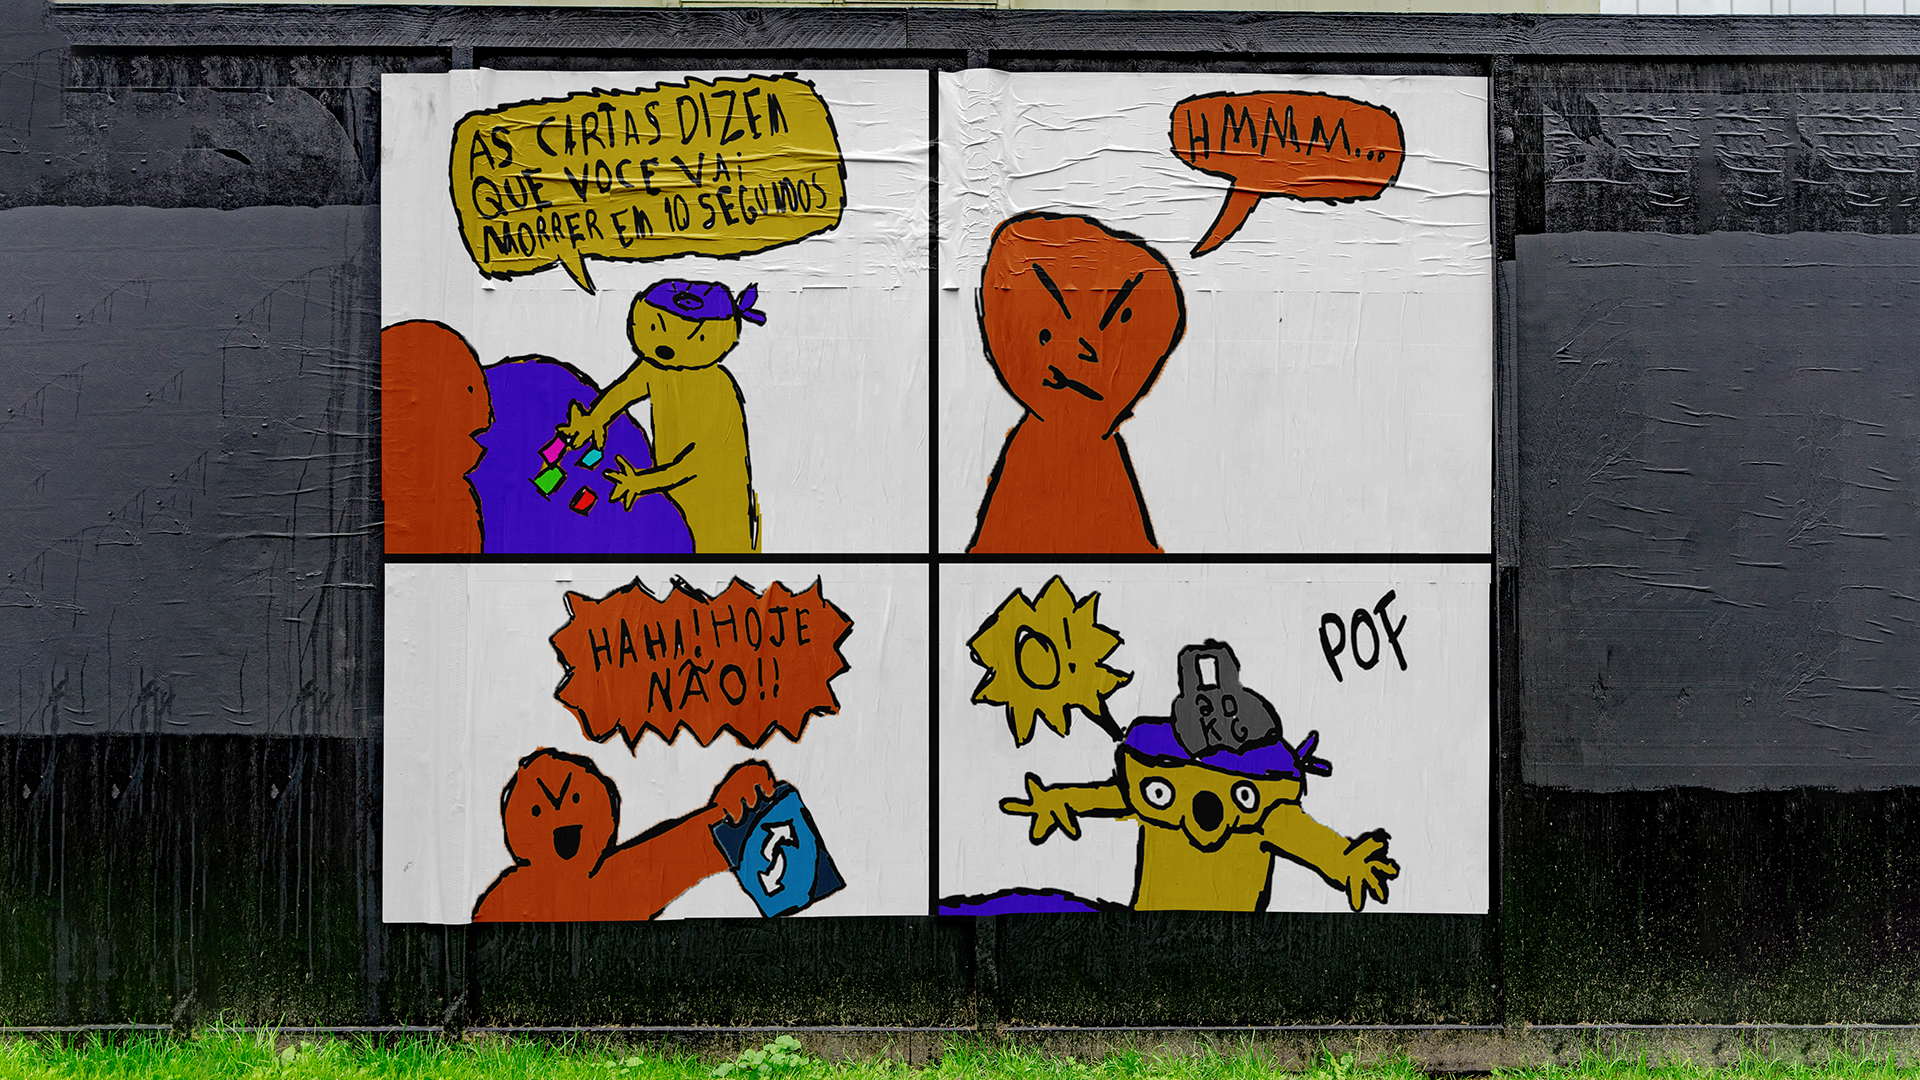 AS CARTAS DIZEM
QUE VOCE VAi
MORRER EM 10 SEGUNDOS
HMMM...
HAHA! HOJE
NÃO!!
O!
POF
20
KG